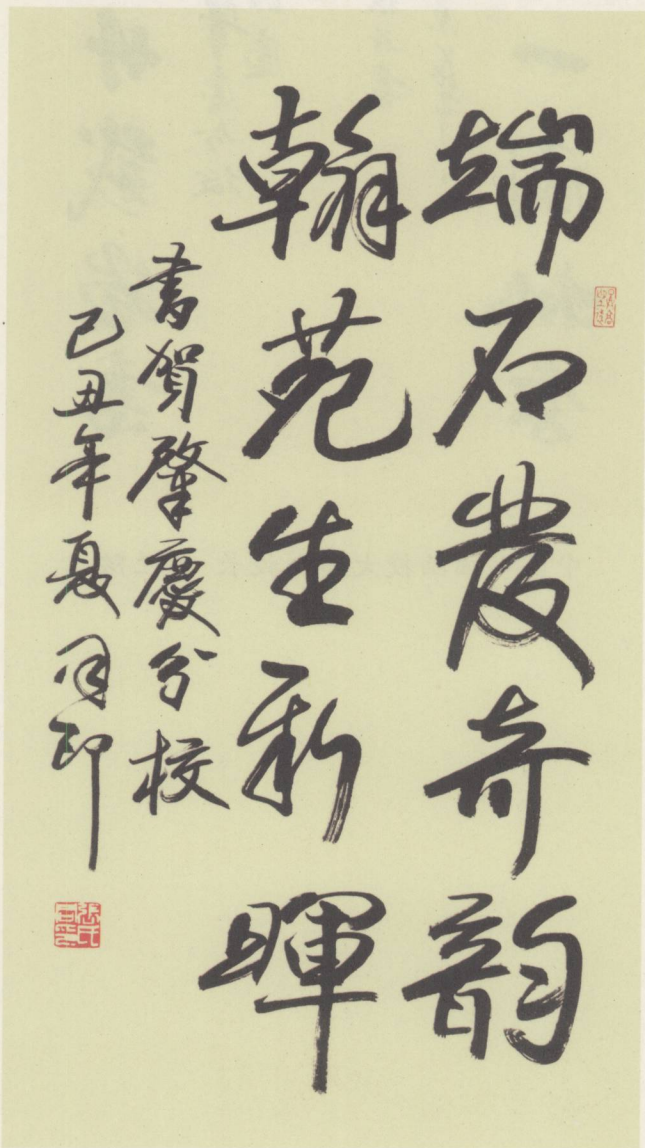 端石發奇韵
翰苑生新暉
書賀肇慶分校
己丑年夏同印